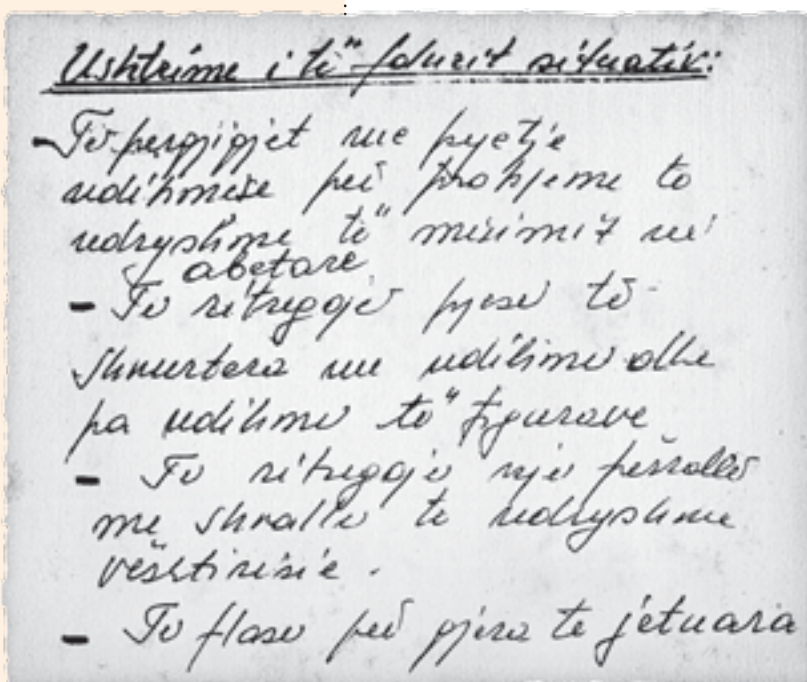 Ushtrime i të folurit situativ:
- Të pergjigjet me pyetje
ndihmëse për probleme të
ndryshme të mësimit në
abetare
- Të ritregojë pjesë të
shkurtera me ndihmë dhe
pa ndihmë të figurave
- Të ritregojë një përrallë
me shkallë të ndryshme
vështirësie.
- Të flasë për gjëra të jetuara